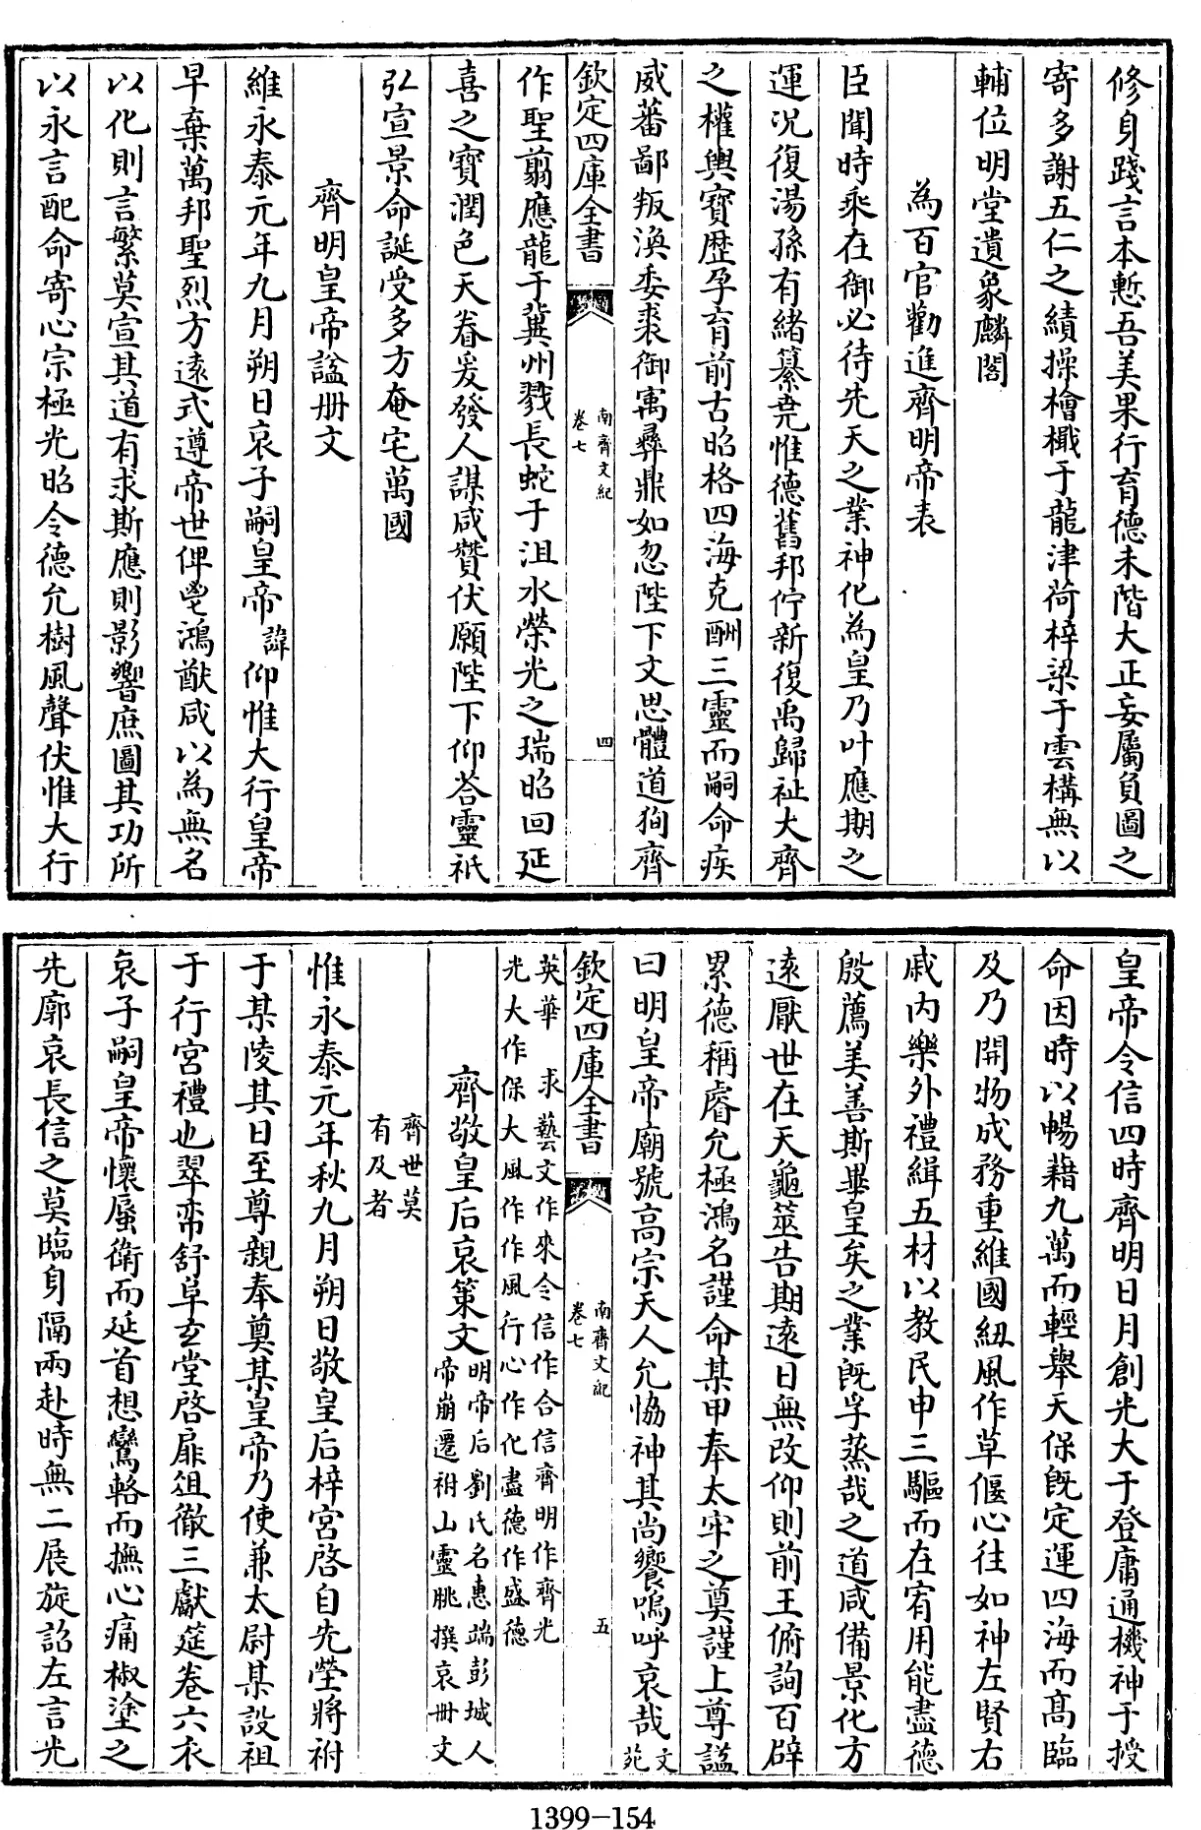 修身踐言本慙吾美果行育德未階大正妄屬負圖之
寄多謝五仁之績操檜檝于龍津荷梓梁于雲構無以
輔位明堂遺象麟閣
為百官勸進齊明帝表
臣聞時乘在御必待先天之業神化為皇乃叶應期之
運况復湯孫有緒纂堯惟德舊邦佇新復禹歸祉大齊
之權輿寶歴孕育前古昭格四海克酬三靈而嗣命疾
威蕃鄙叛渙委裘御寓彛鼎如忽陛下文思體道徇齊
欽定四庫全書
南齊文紀
卷七
四
作聖翦應龍于冀州戮長蛇于沮水榮光之瑞昭回延
喜之寳潤色天眷爰發人謀咸贊伏願陛下仰荅靈祇
弘宣景命誕受多方奄宅萬國
齊明皇帝諡册文
維永泰元年九月朔日哀子嗣皇帝諱仰惟大行皇帝
早棄萬邦聖烈方遠式遵帝世俾鴻猷咸以為無名
以化則言繁莫宣其道有求斯應則影響庶圖其功所
以永言配命寄心宗極光昭令德允樹風聲伏惟大行
皇帝令信四時齊明日月創光大于登庸通機神于授
命因時以暢藉九萬而輕舉天保既定運四海而髙臨
及乃開物成務重維國紐風作草偃心往如神左賢右
戚内樂外禮緝五材以教民申三驅而在宥用能盡德
殷薦美善斯畢皇矣之業既孚蒸哉之道咸備景化方
遠厭世在天龜筮告期遠日無改仰則前王俯詢百辟
累德稱睿允極鴻名謹命某甲奉太牢之奠謹上尊諡
曰明皇帝廟號高宗天人允恊神其尚饗嗚呼哀哉文苑
欽定四庫全書
南齊文紀
卷七
五
英華 求藝文作來令信作合信齊明作齊光
光大作保大風作作風行心作化盡德作盛德
齊敬皇后哀策文明帝后劉氏名惠端彭城人
帝崩遷祔山靈朓撰哀冊文
齊世莫
有及者
惟永泰元年秋九月朔日敬皇后梓宮啓自先塋將祔
于某陵其日至尊親奉奠某皇帝乃使兼太尉某設祖
于行宮禮也翠帟舒阜玄堂啓扉俎徹三獻筵卷六衣
哀子嗣皇帝懷蜃衛而延首想鸞輅而撫心痛椒塗之
先廓哀長信之莫臨身隔兩赴時無二展旋詔左言光
1399-154